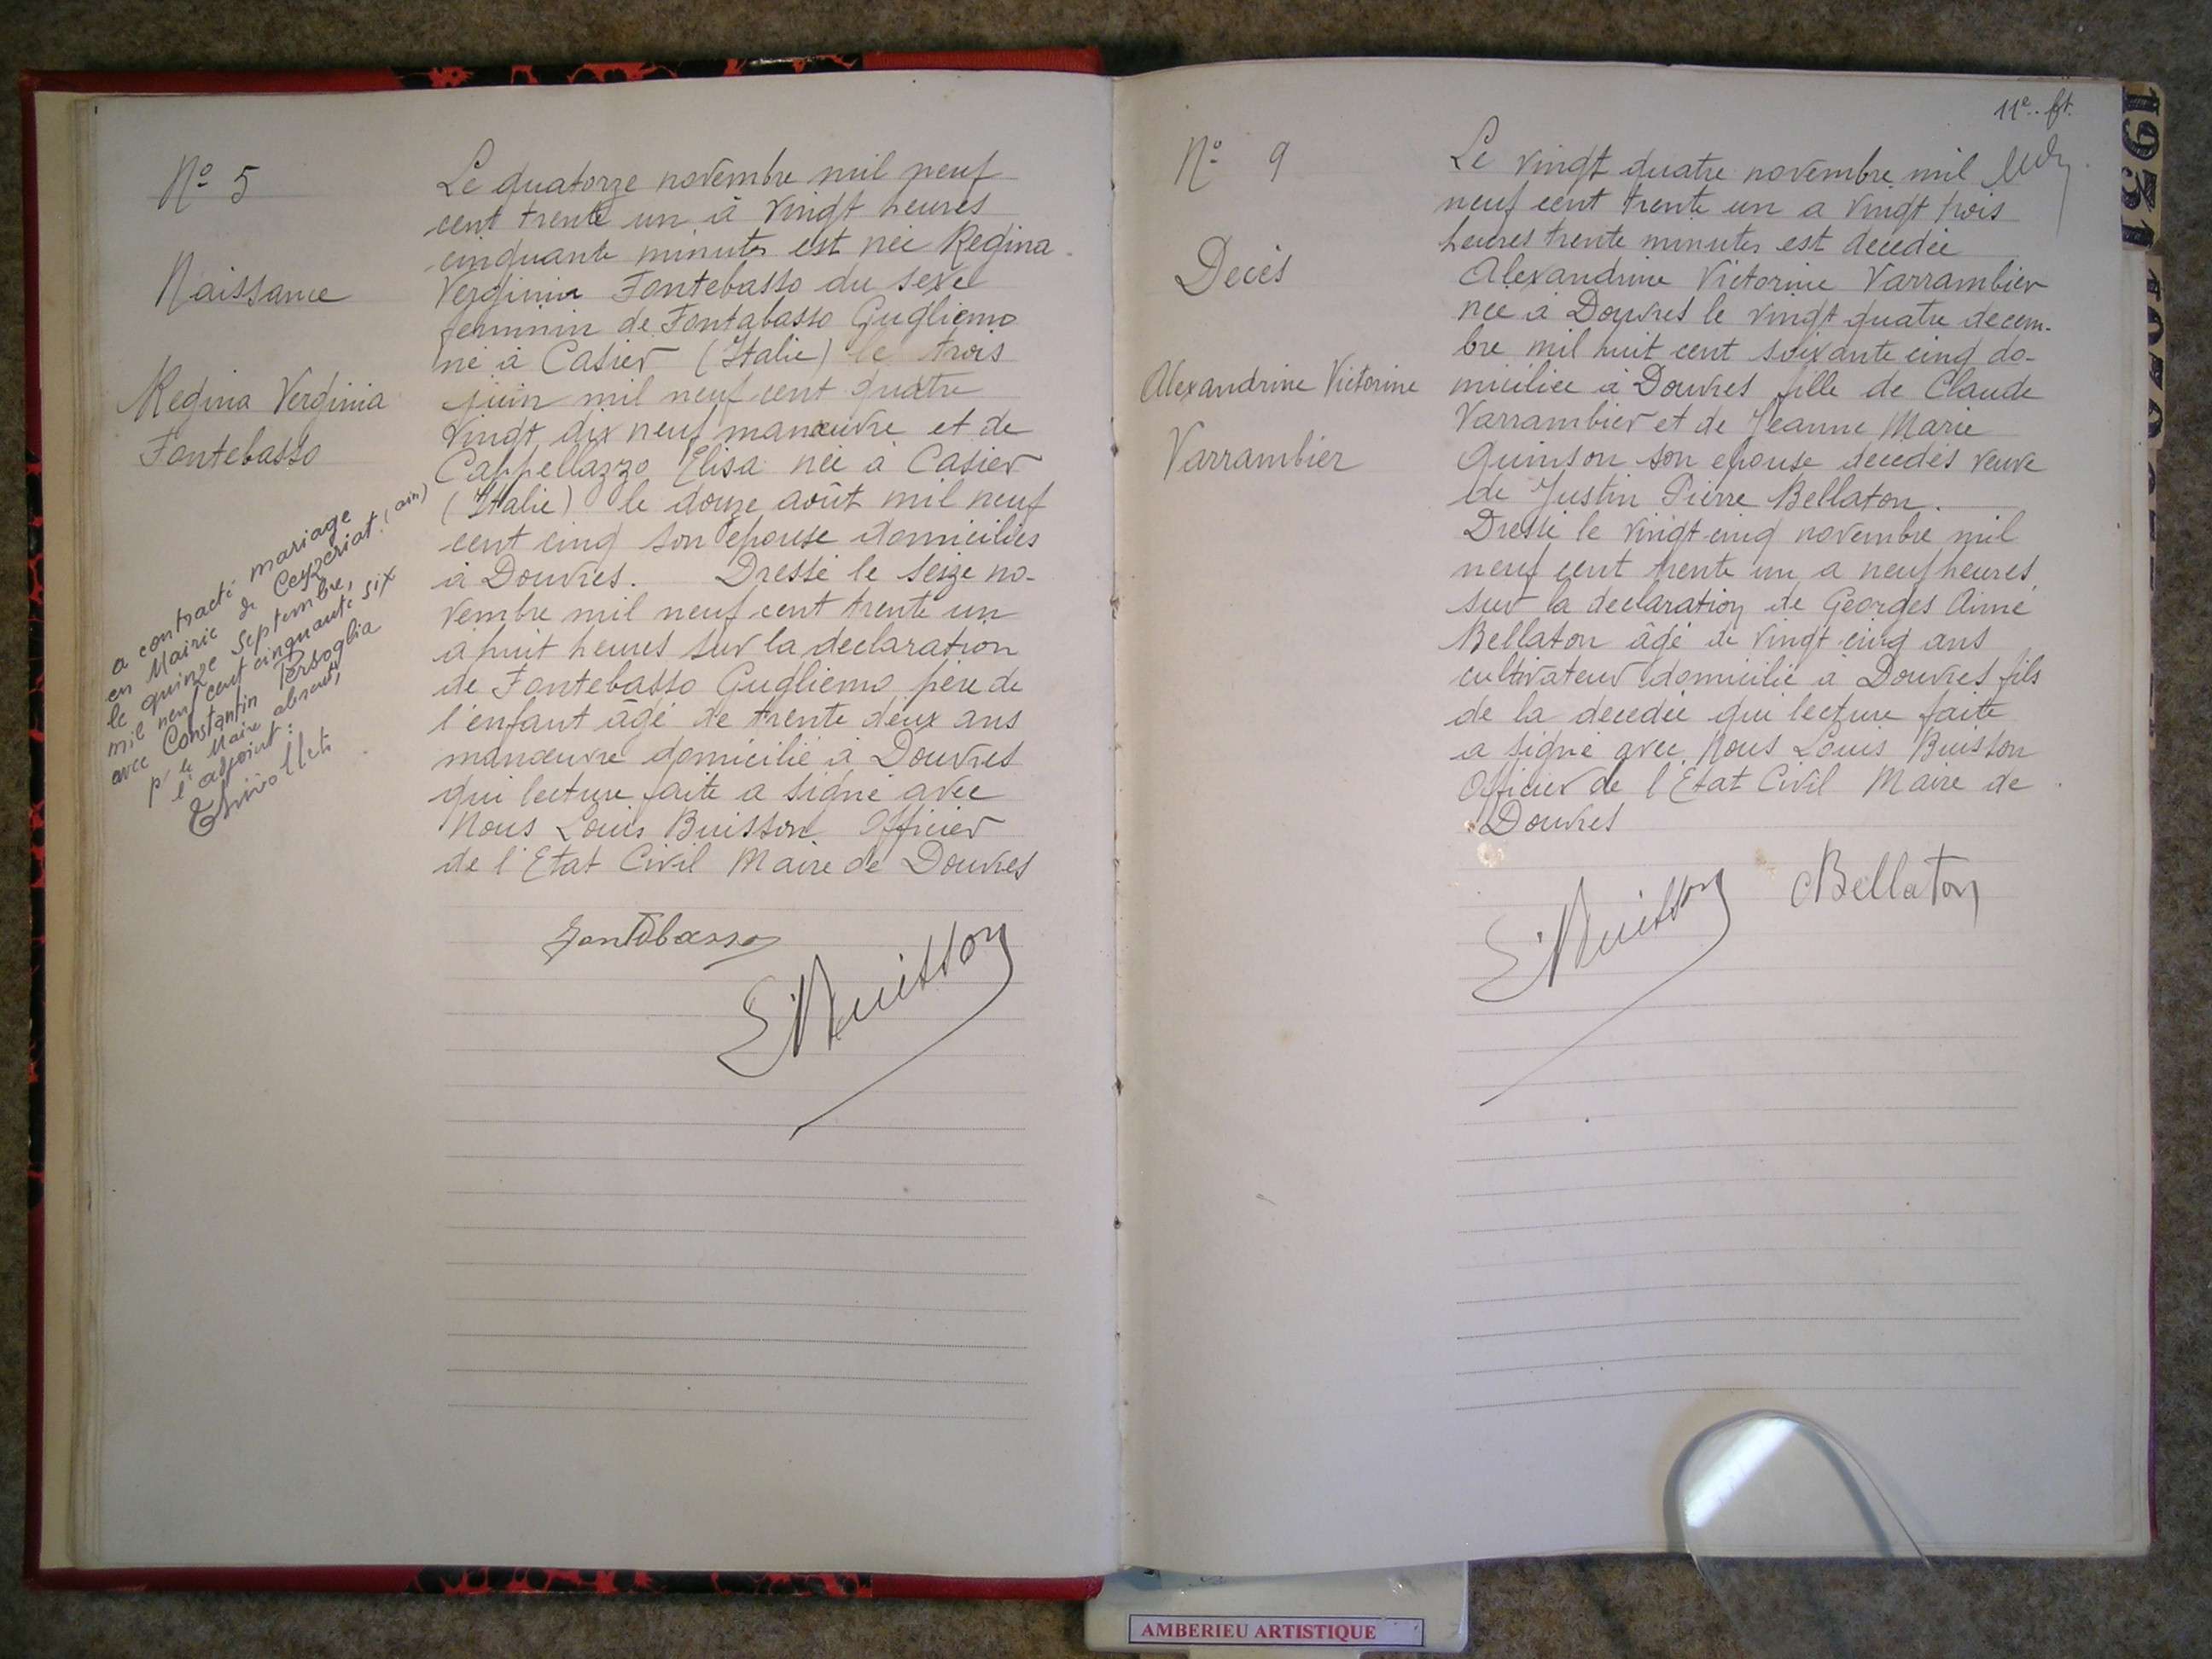 Nº 5
Naissance
Regina Verginia
Fontebasso
a contracté mariage
en Mairie de Ceyzeriat (ain)
le quinze Septembre,
mil neuf cent cinquante six
avec Constantin Persoglia
pr le Maire absent,
l'adjoint :
Thivollet
Le quatorze novembre mil neuf
cent trente un à vingt heures
cinquante minutes est née Regina
Verginia Fontebasso du sexe
feminin de Fontabasso Gugliemo
né à Casier (Italie) le trois
juin mil neuf cent quatre
vingt dix neuf manœuvre et de
Cappellazzo Elisa née à Casier
(Italie) le douze août mil neuf
cent cinq son épouse domiciliés
à Douvres. Dressé le seize no-
vembre mil neuf cent trente un
à huit heures sur la declaration
de Fontebasso Gugliemo père de
l'enfant âgé de trente deux ans
manœuvre domicilié à Douvres
qui lecture faite a signé avec
Nous Louis Buisson Officier
de l'Etat Civil Maire de Douvres
Fontebasso
Buisson
11e ft.
1931
Nº 9
Décès
Alexandrine Victorine
Varrambier
Le vingt quatre novembre mil
neuf cent trente un a vingt trois
heures trente minutes est decedée
Alexandrine Victorine Varrambier
née à Douvres le vingt quatre decem-
bre mil huit cent soixante cinq do-
miciliée à Douvres fille de Claude
Varrambier et de Jeanne Marie
Quinson son epouse decedés veuve
de Justin Pierre Bellaton.
Dressé le vingt-cinq novembre mil
neuf cent trente un a neuf heures
sur la declaration de Georges Aimé
Bellaton âgé de vingt cinq ans
cultivateur domicilié à Douvres fils
de la decedée qui lecture faite
a signé avec Nous Louis Buisson
Officier de l'Etat Civil Maire de
Douvres
Buisson
Bellaton
AMBERIEU ARTISTIQUE